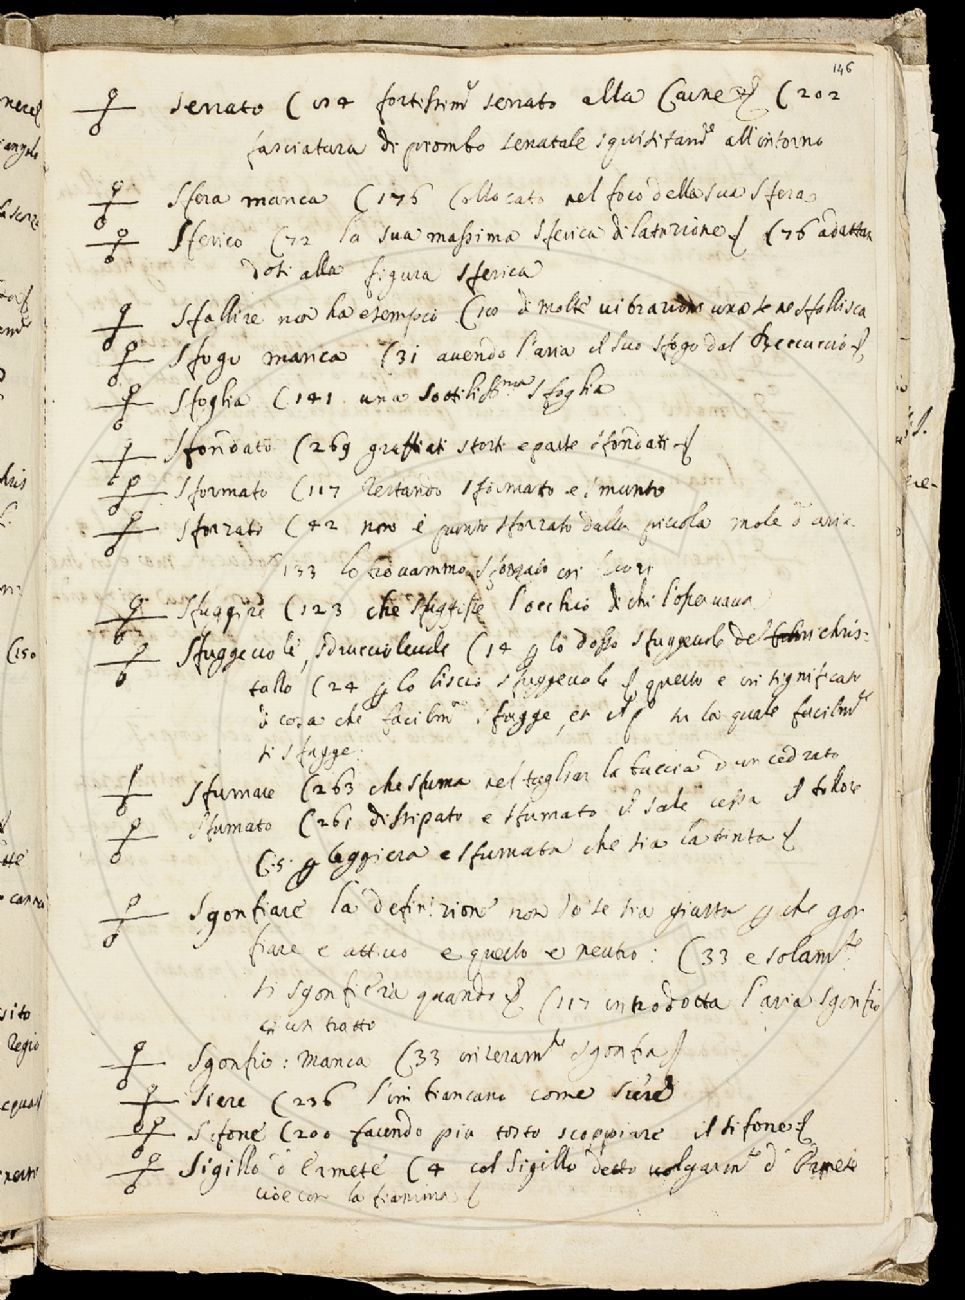 146
serrato ( 194 fortissim.e serrato alla Carne &c. ( 202
fasciatura di piombo serratale squisitam.te all'intorno
Sfera manca ( 176 Collocato nel foco della sua Sfera
Sferico ( 72 la sua massima sferica dilatazione &c. ( 76 adattan
dosi alla figura sferica
Sfallire non ha esempio ( 20 di molte vibrazioni una se ne sfallisca
Sfogo manca ( 31 avendo l'aria il suo sfogo dal Beccuccio &c.
Sfoglia ( 141 una sottiliss.ma sfoglia
Sfondato ( 269 graffiati storti e parte sfondati &c.
Sformato ( 117 restando sformato e smunto
Sforzato ( 42 non è punto sforzato dalla piccola mole d'aria
133 lo trovammo sforzato
Sfuggire ( 123 che sfuggisse l'occhio di chi l'osservava
Sfuggevole, sdrucciolevole ( 14 p lo dosso sfuggevole del chris:
tallo ( 24 p lo liscio sfuggevole &c. questo è in significato
di cosa che facilm.te sfugge, et su la quale facilm.te
si sfugge.
Sfumare ( 263 che sfuma nel tagliar la buccia d'un cedrato
Sfumato ( 261 dissipato e sfumato il sale cessa il bollore
p leggiera e sfumata che sia la tinta &c.
Sgonfiare la definizione non so se sia giusta p che gon
fiare è attivo e questo è neutro: ( 33 e solam.te
si sgonfierà quando &c. ( 117 introdotta l'aria sgonfiò
in un tratto
Sgonfio: manca ( 33 interam.te sgonfia &c.
Siere ( 236 s'imbiancano come siere
Sifone ( 200 facendo più tosto scoppiare il sifone &c.
Sigillo d'Ermete ( 4 col sigillo detto volgarm.te d'Ermete
cioè con la fiamma &c.